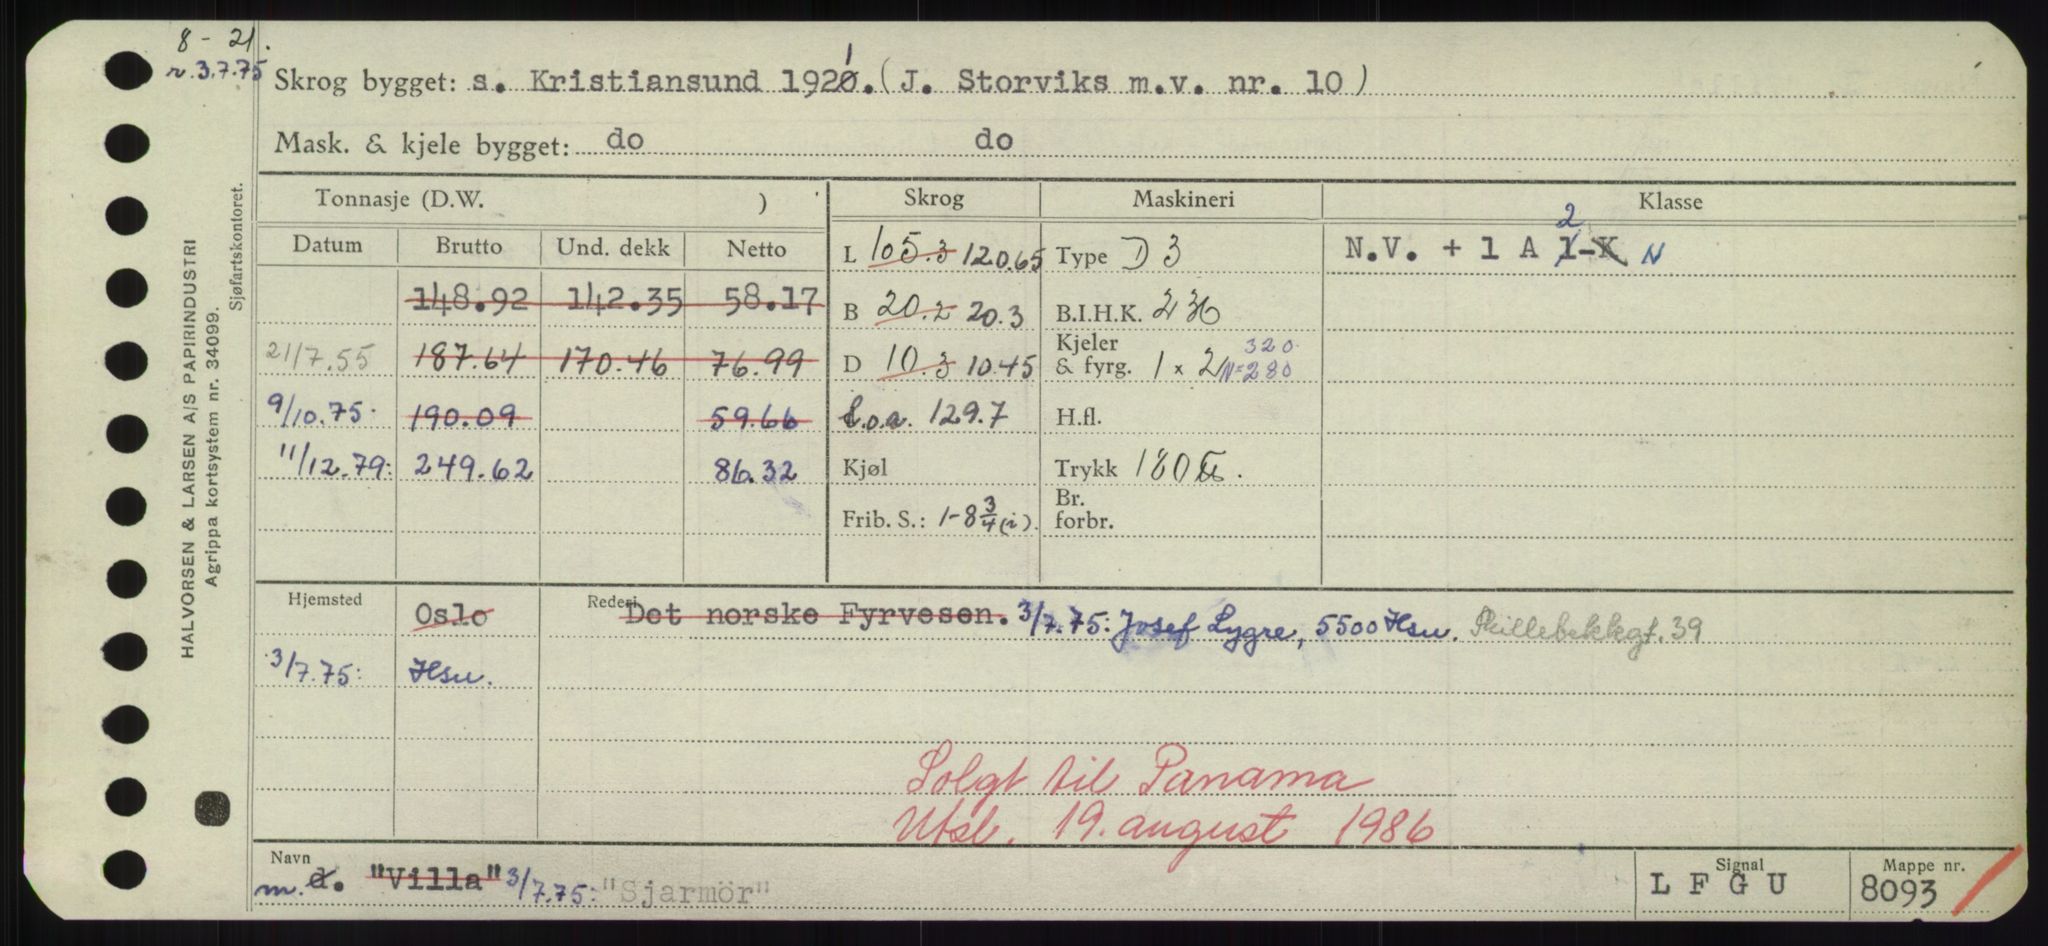 8 - 21.
r. 3.7.75
Skrog bygget: s. Kristiansund 1920. 1 (J. Storviks m.v. nr. 10)
Mask. & kjele bygget: do do
Tonnasje (D.W. ) Skrog Maskineri Klasse
Datum Brutto Und. dekk Netto L 105.3 120.65 Type D 3 N.V. + 1 A 1-K 2 N
148.92 142.35 58.17 B 20.2 20.3 B.I.H.K. 236
21/7.55 187.64 170.46 76.99 D 10.3 10.45 Kjeler & fyrg. 1 x 2 320. N=280
9/10.75. 190.09 59.66 L.o.a. 129.7 H.fl.
11/12.79: 249.62 86.32 Kjøl Trykk 180
Frib. S.: 1-8 3/4 (i). Br. forbr.
Hjemsted Oslo Rederi Det norske Fyrvesen. 3/7.75: Josef Lygre, 5500 Hsu. Skillebekkgt. 39
3/7.75: Hsu.
Solgt til Panama
Utsl. 19. august 1986
Navn Signal Mappe nr.
m. d. "Villa" 3/7.75: "Sjarmör" L F G U 8093
HALVORSEN & LARSEN A/S PAPIRINDUSTRI
Agrippa kortsystem nr. 34099.
Sjøfartskontoret.